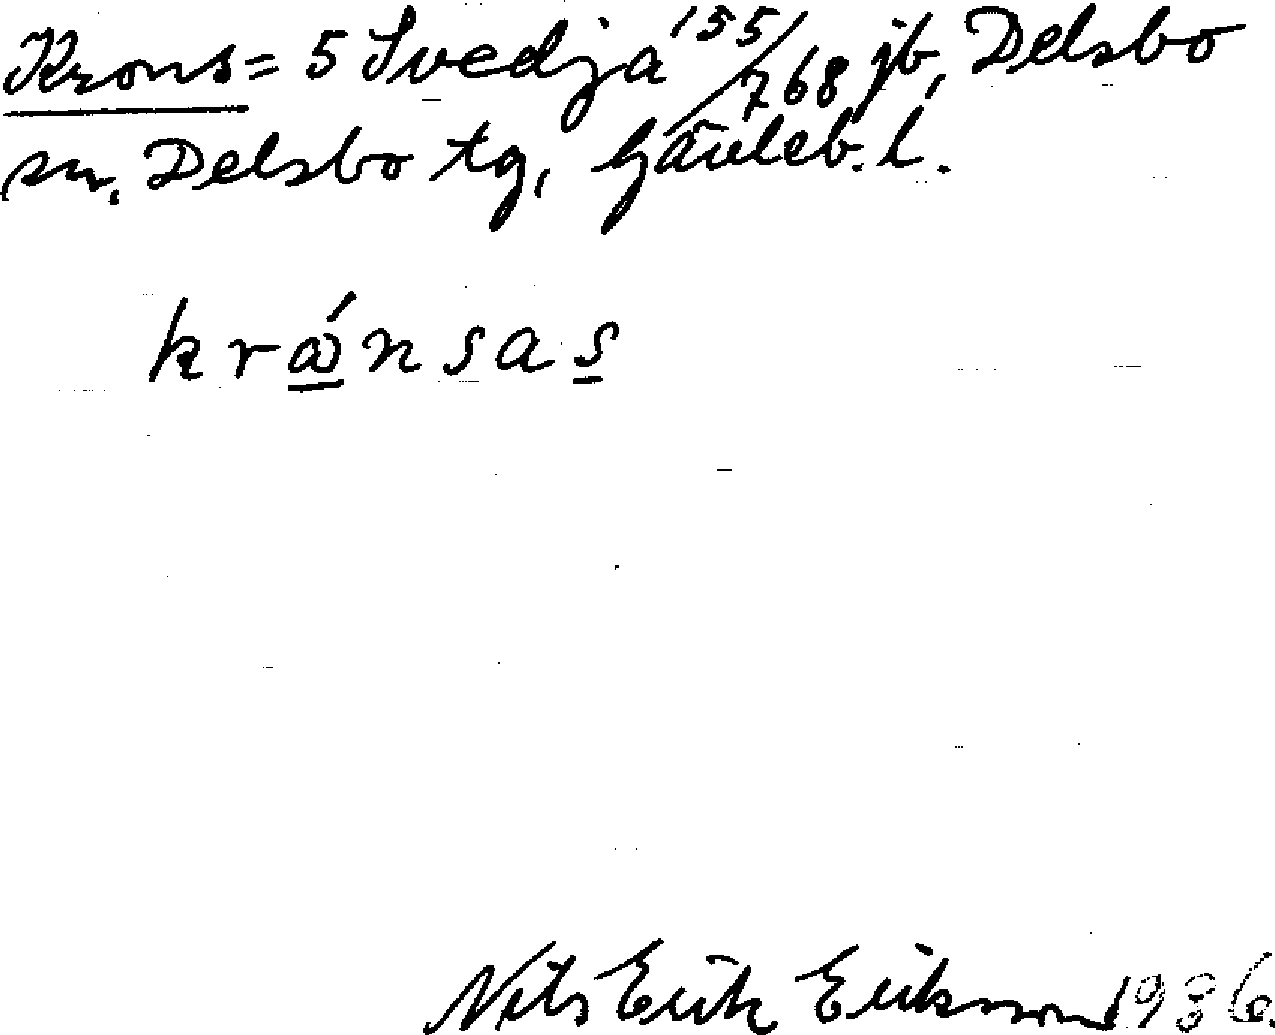 Krons = 5 Svedja 155/768 jb, Delsbo
sn. Delsbo tg, Gävleb. l.
krånsas
Nils Erik Eriksson 1936.